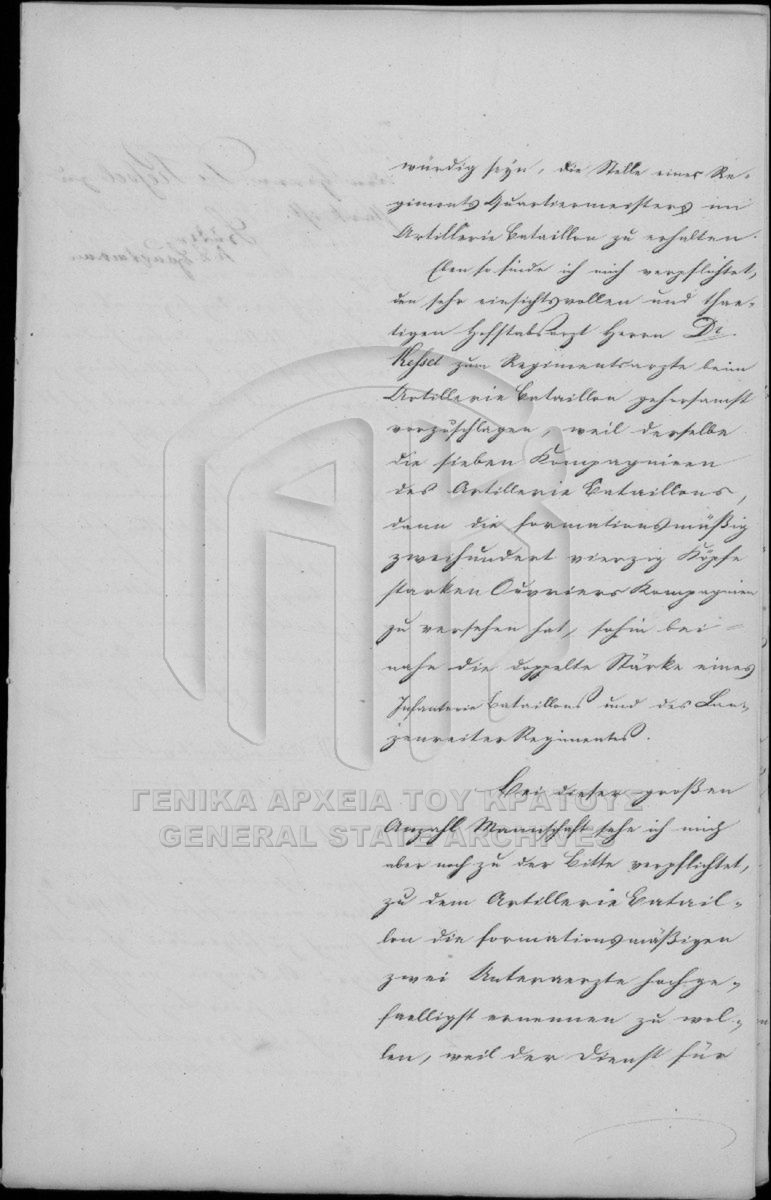 würdig seyn, die Stelle eines Re-
giments Quartiermeisters im
Artillerie Bataillon zu erhalten.
Eben so finde ich mich verpflichtet,
den sehr einsichtsvollen und thae-
tigen Hofstabsarzt Herrn Dr.
Kessel zum Regimentsarzte beim
Artillerie Bataillon gehorsamst
vorzuschlagen, weil derselbe
die sieben Kompagnieen
des Artillerie Bataillons,
dann die formationsmäßig
zweihundert vierzig Köpfe
starken Ouvriers Kompagnieen
zu versehen hat, sohin bei-
nahe die doppelte Stärke eines
Infanterie Bataillons und des Lan-
zenreiter Regimentes.
Bei dieser großen
Anzahl Mannschaft sehe ich mich
aber noch zu der Bitte verpflichtet,
zu dem Artillerie Batail-
lon die formationsmäßigen
zwei Unteraerzte hochge-
faelligst ernennen zu wol-
len, weil der Dienst für
ΓΕΝΙΚΑ ΑΡΧΕΙΑ ΤΟΥ ΚΡΑΤΟΥΣ
GENERAL STATE ARCHIVES